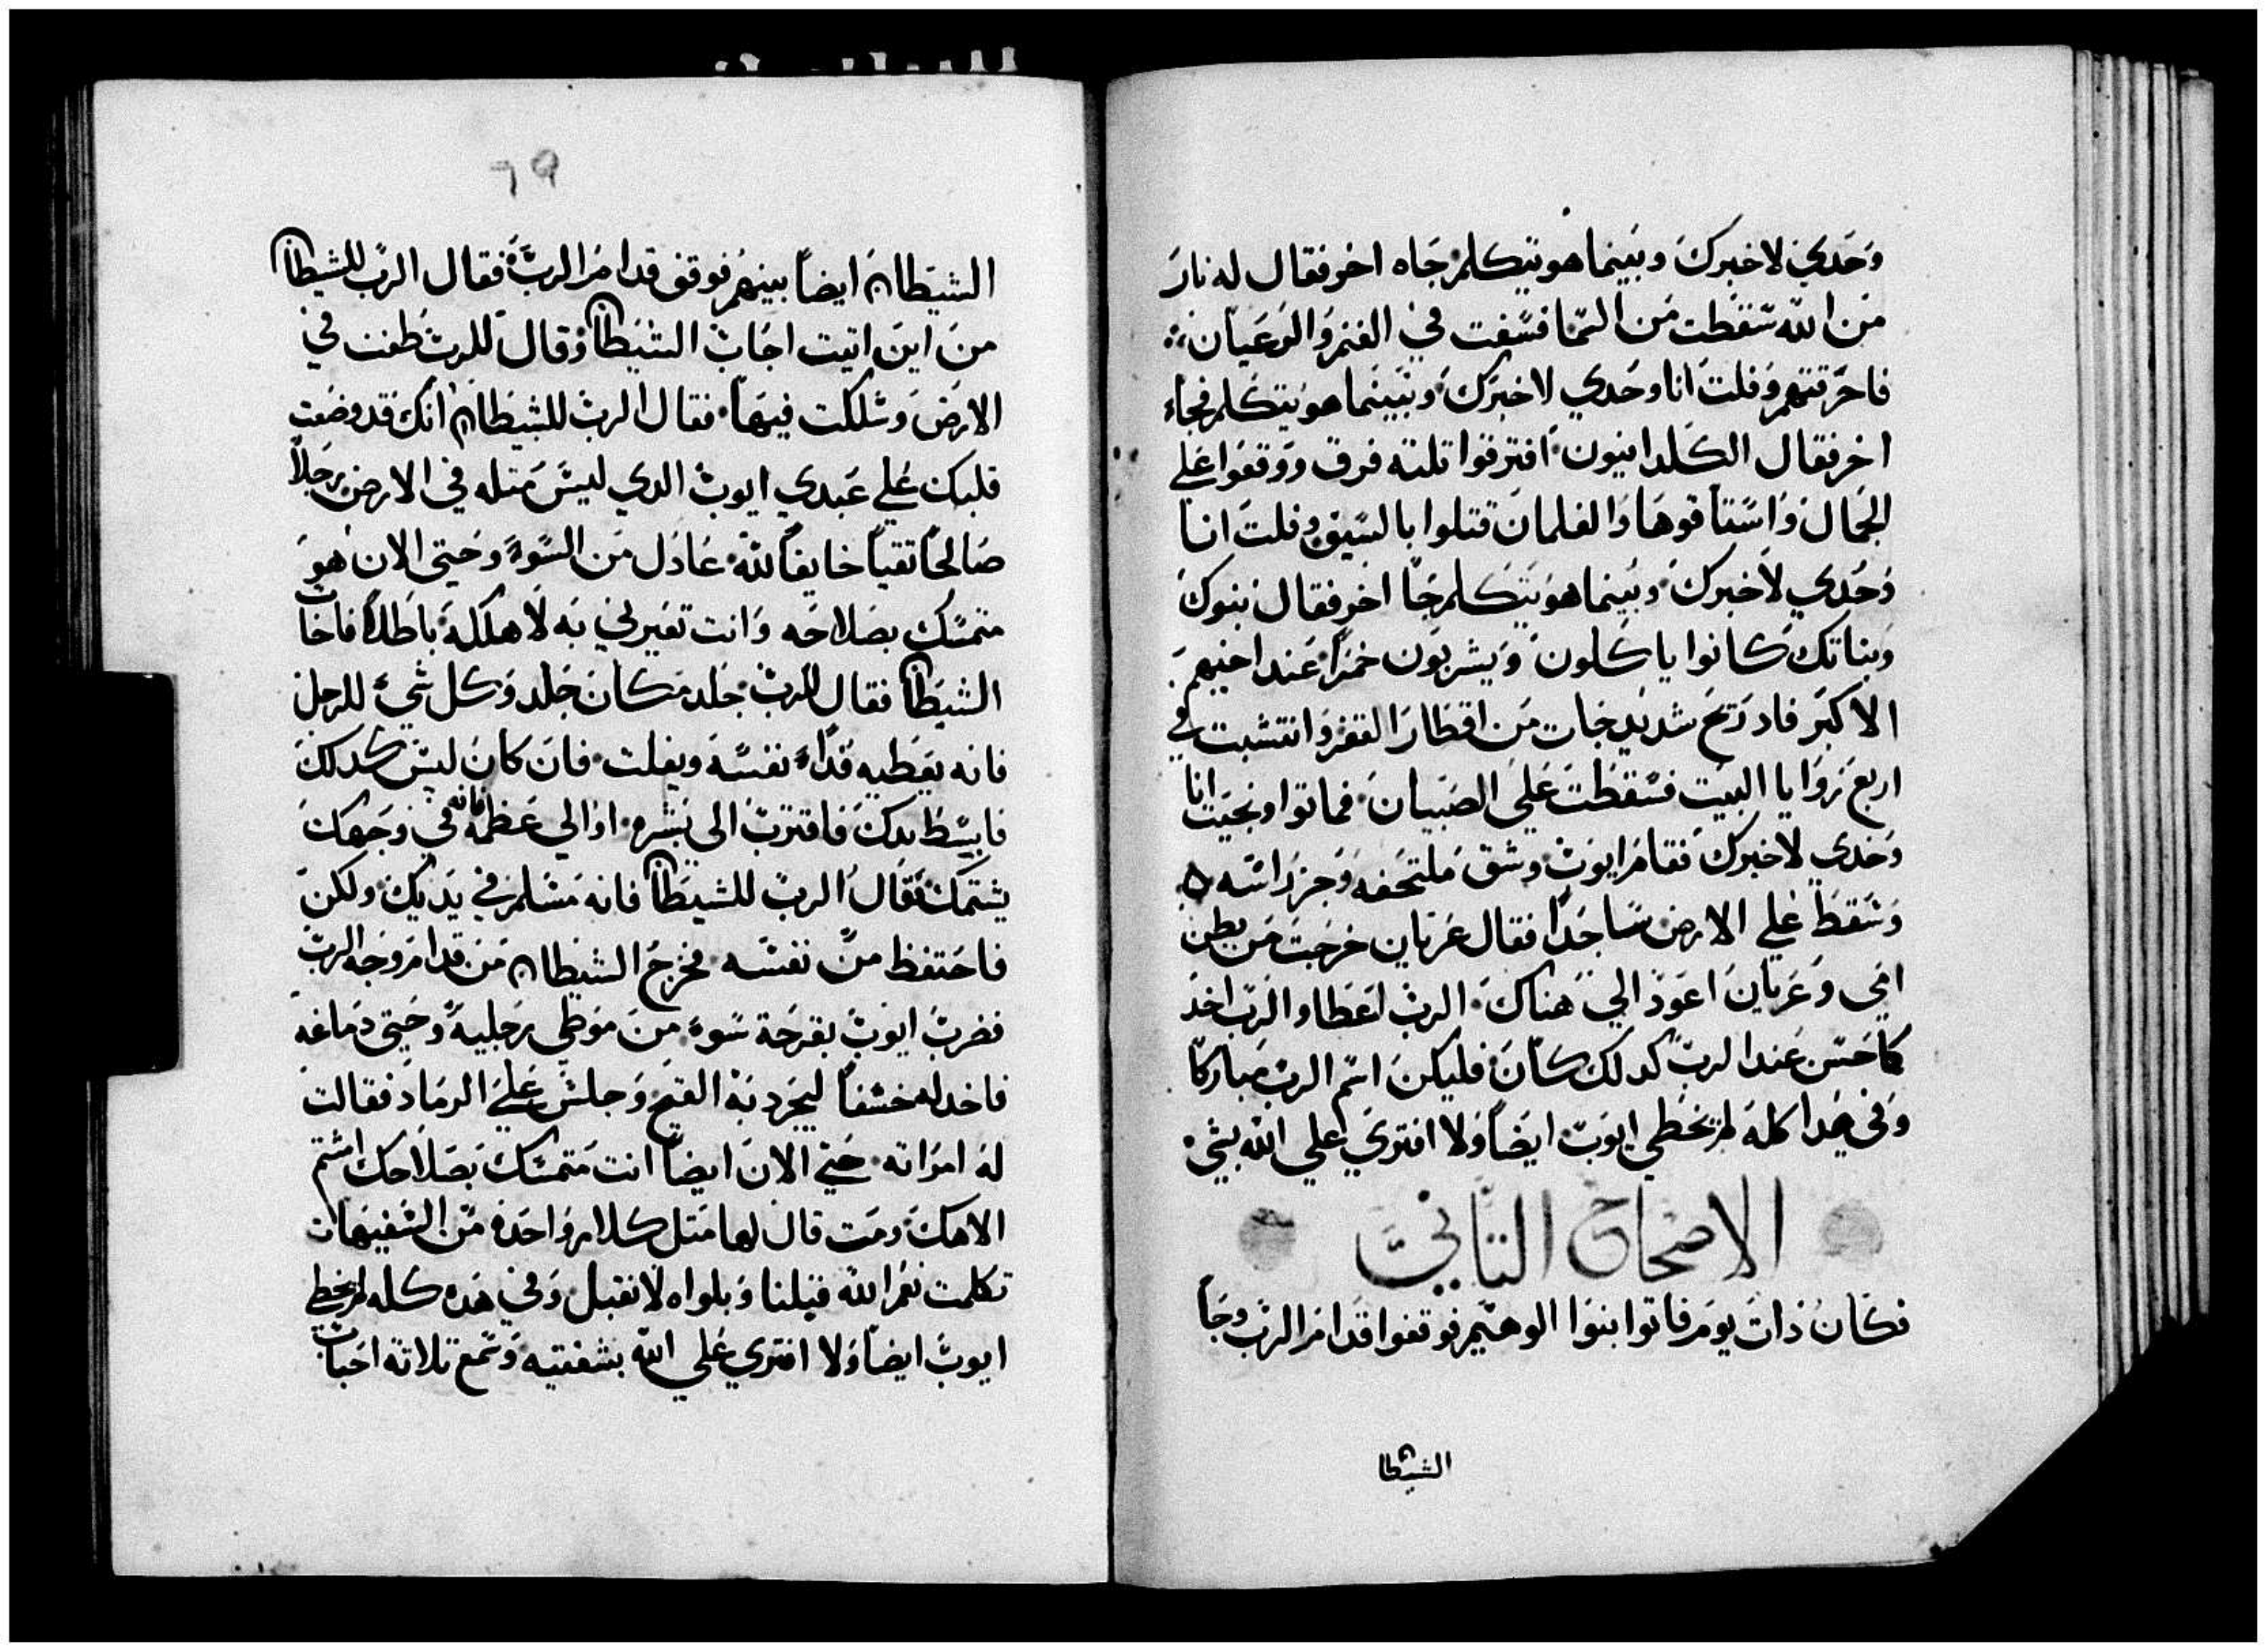 وَحَدي لاخبرك وبينما هو يتكلم جَاه اخر فقال له نارَ
من الله سَقطت من السّما فسّفت في الغنم والرَعيان
فاحرَقتهم وَفلت انا وحَدي لاخبرك وبَينما هو يتكلم فجاء
اخر فقال الكلدانيون افترقوا تلته فرق ووقفوا عَلي
الجمال وَاسّتاقوها وَالغلمان قتلوا بالسّيف وفلت انا
وَحُدي لاَخبرك وبينما هو يتكلم جَا اخر فقال بنوك
وَبناتك كانوا ياكلون وَيشربون خمرًا عَند اخيهم
الاكبَر فاد رَيح شديد جات مَن اقطار القفر وَانتشبت في
اربع زوَايا البيت فسّقطت عَلي الصَبيان فماتوا ونجيت انا
وَحَدي لاخبرك فقام ايوَب وشق ملتحفه وَجز رَاسَه ه
وَسَقط عَلي الارض سَاجَدًا فقال عَريان خرجت من بطن
امَي وَعَريان اعَود الي هَناك الرب اعَطا والرَب اخد
كما حَسَن عَند الربّ كدلك كان فليكن اسّم الرب مباركًا
وَفي هَدا كله لم يخطي ايوَبَ ايضًا وَلا افتري علي الله بشي
الاصحاح التاني
فكان ذات يوم فاتوا بنوا الوهيم فوقفوا قدام الرَب وجَاً
الشيطان
٦٩
الشيَطان ايضاً بينهم فوقف قدام الربّ فقال الربّ للشيطان
من اين اتيت اجَاب الشيَطان وَقال للرب طفت في
الارض وَسَلكت فيهَا فقال الرب للشيطان انك قد وضعت
قلبك عَلي عَبدي ايوب الدي ليسَ مَتله في الارض رجلاً
صَالحًا تقياً خايفاً للّه عَادل من السّوء وحَتي الان هو
متمسّك بصَلاحَه وَانت تغيرني به لاهلكه باطلاً فاجاب
الشيطان فقال للرب جَلد مَكان جَلد وَكل شي للرجل
فانه يعَطيه فدَاء نفسَه ويفلت فان كان ليسَ كدلك
فابسّط يدك فاقترب الى بشره او الي عَظمه فانه في وَجهك
يشتمك فقال الربّ للشيطان فانه مَسَلم في يَديك ولكن
فاحَتفظ من نفسّه فخرج الشيطان مَن قدام وجه الربّ
فضرب ايوَب بقرحَة سَوء من مَوَطي رجليه وحَتي دمَاغه
فاخد له خشفاً ليجرد به القيح وَجلسَ عَلي الرمَاد فقالت
له امرَاته حَتي الان ايضاً انت مَتمسَك بصَلاحَك اشتم
الاهك ومَت قال لها مَتل كلام واحَدة من السَفيهات
تكلمت نعَم الله قبلنا وَبلواه لا نقبل وَفي هَده كله لم يخطي
ايوَب ايضاً وَلا افتري عَلي اللّه بشفتيه وَسَمع تلاتة احَباب